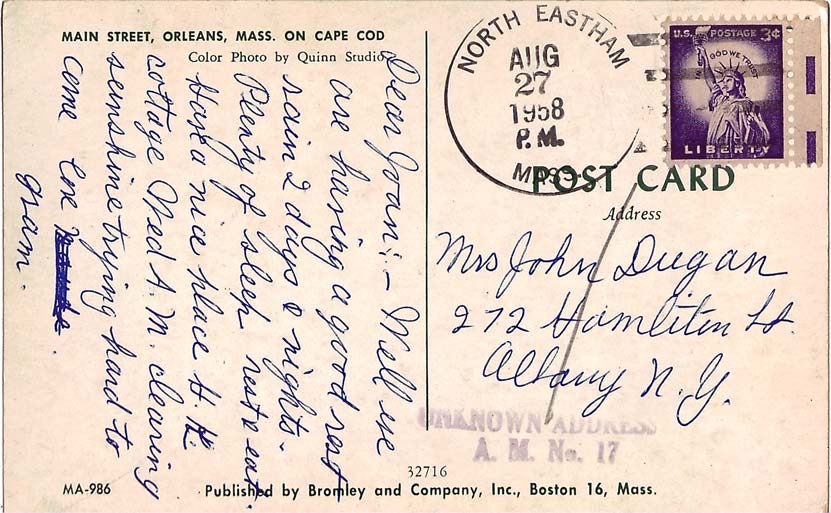 MAIN STREET, ORLEANS, MASS. ON CAPE COD
Color Photo by Quinn Studio
Dear Joan:- Well we
are having a good rest
rain 2 days & nights.
Plenty of sleep rest & eat.
Have a nice place H. K.
cottage Wed A. M. clearing
sunshine trying hard to
come
Gram.
NORTH EASTHAM
AUG
27
1958
P.M.
MASS.
U.S. POSTAGE 3¢
IN GOD WE TRUST
LIBERTY
POST CARD
Address
Mrs John Dugan
272 Hamliton St.
Albany N. Y.
UNKNOWN ADDRESS
A. M. No. 17
32716
MA-986
Published by Bromley and Company, Inc., Boston 16, Mass.